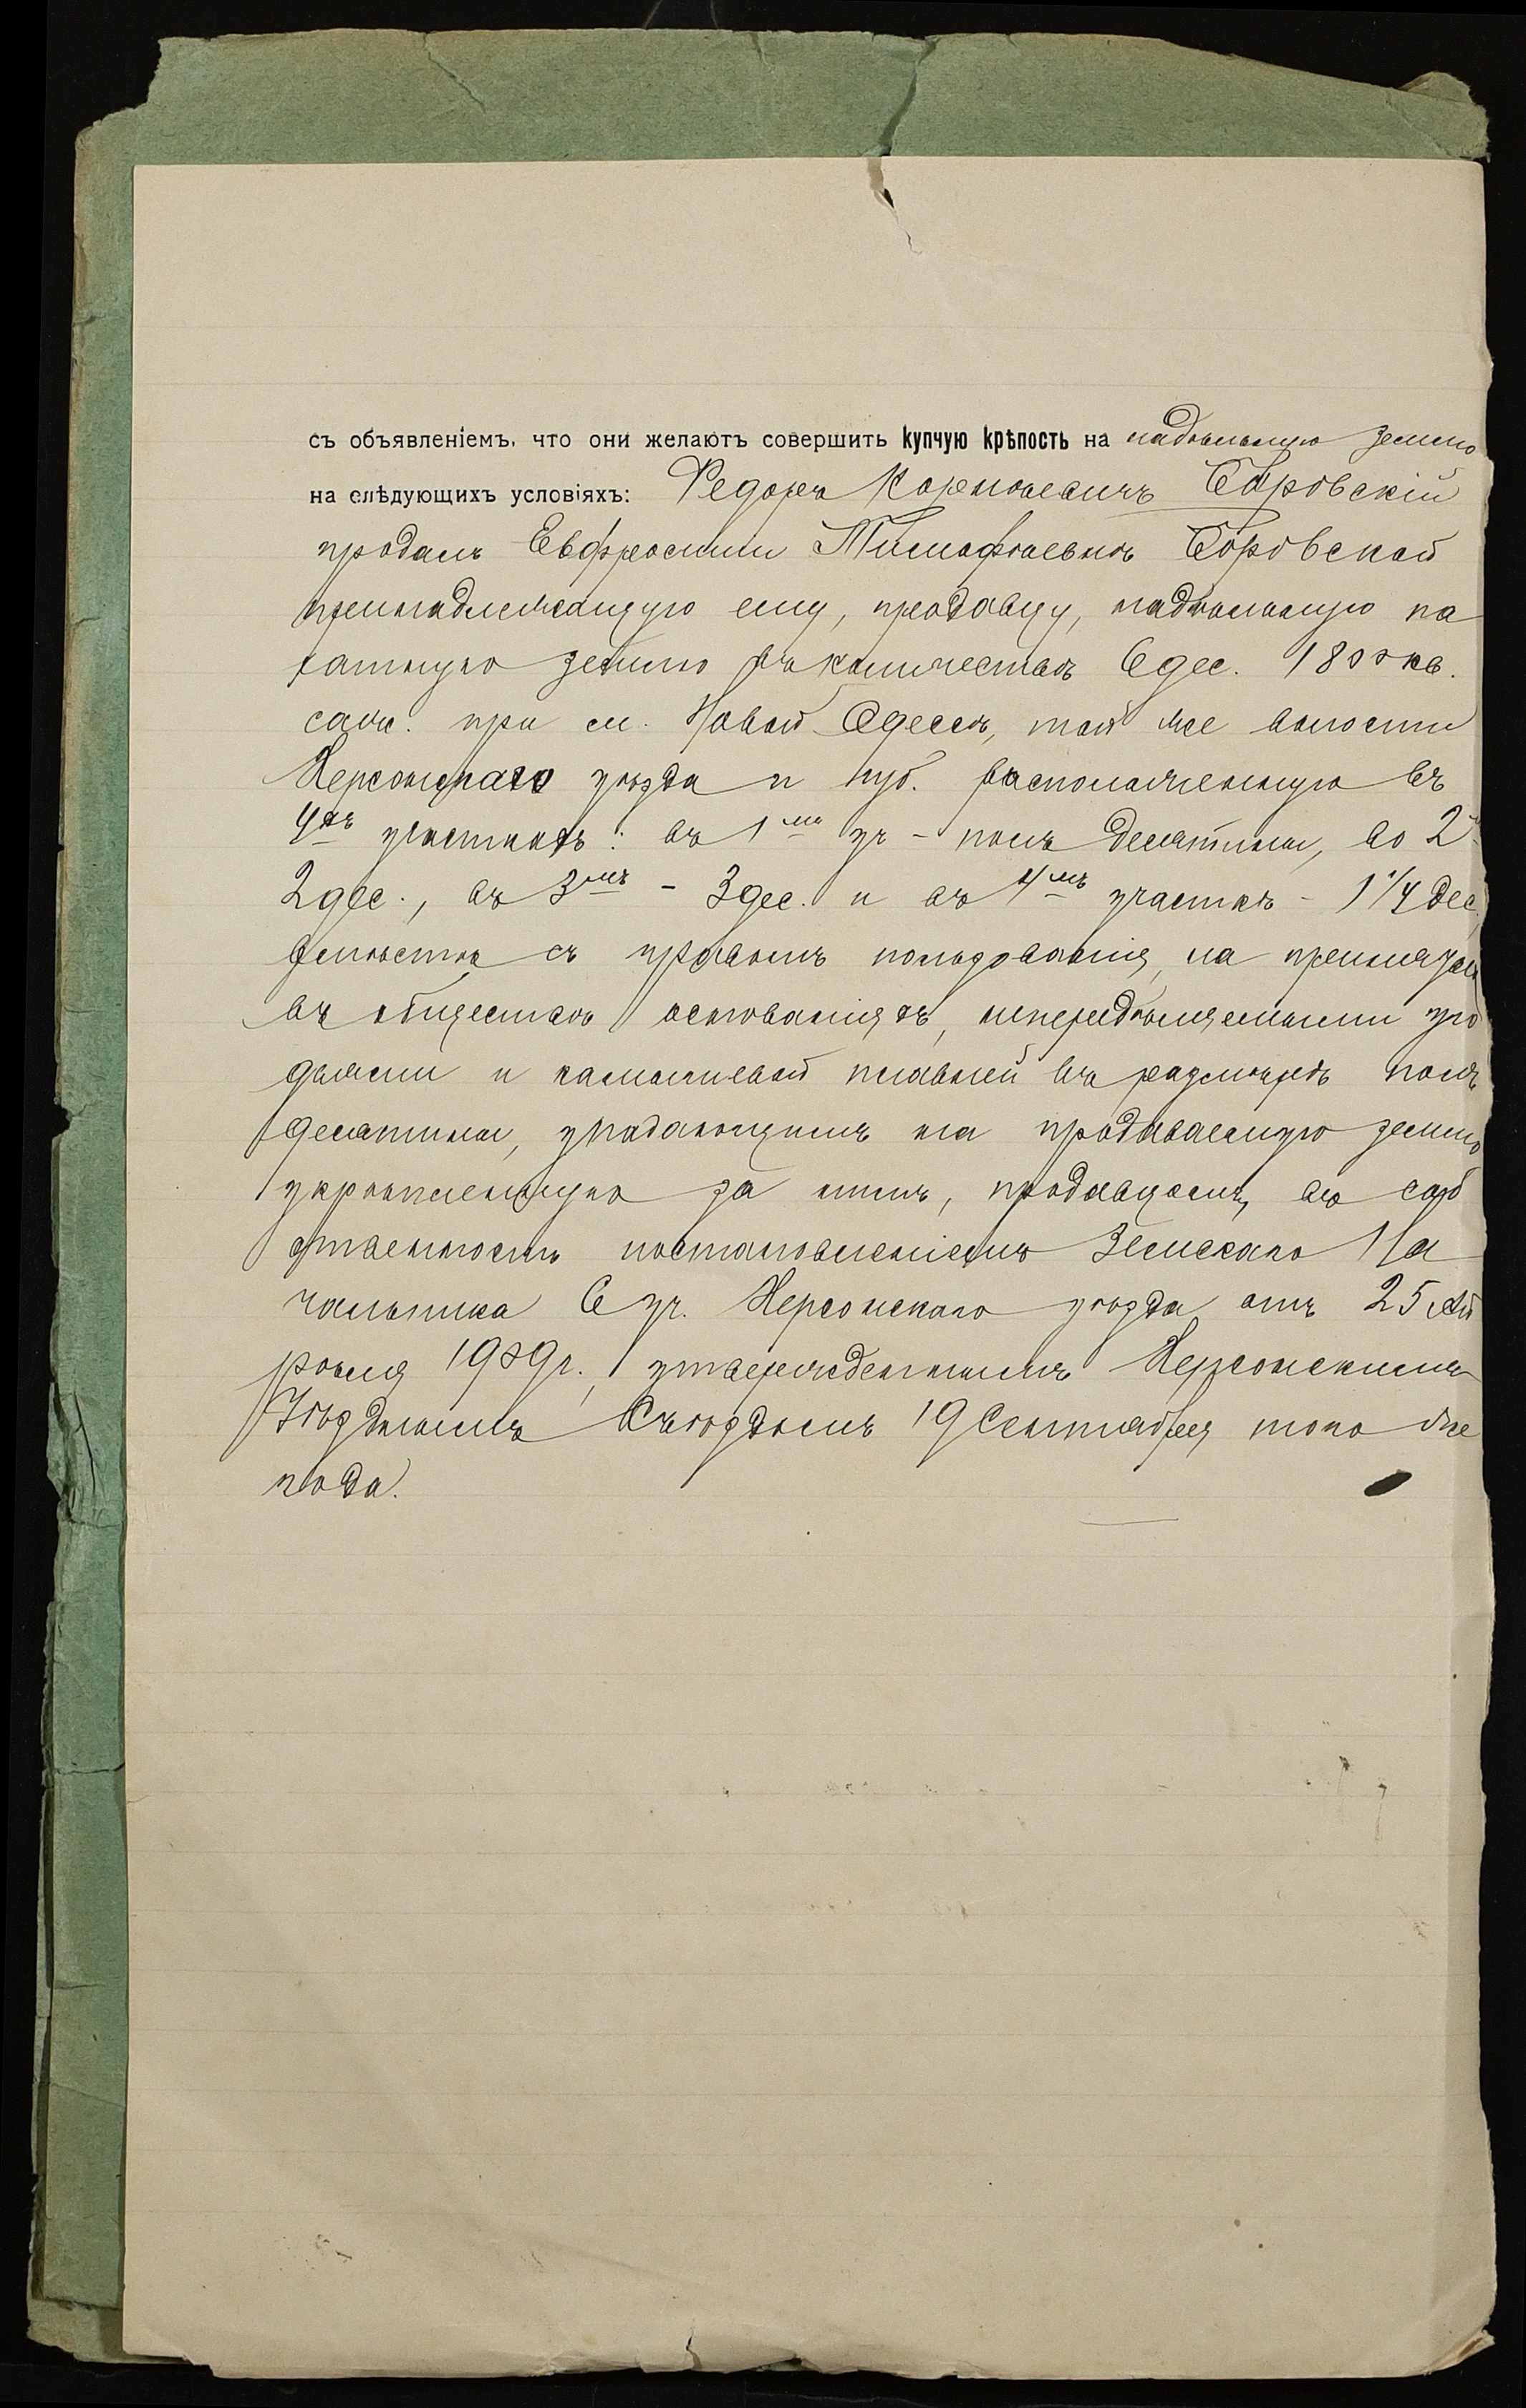 съ объявленіемъ, что они желаютъ совершить купчую крѣпость на надѣльную землю
на слѣдующихъ условіяхъ: Федоръ Корнѣевичъ Боровскій
продалъ Евфросиніи Тимофѣевнѣ Боровской
принадлежащую ему, продавцу, надѣльную па
хатную землю въ количествѣ 6 дес. 1800 кв.
саж. при м. Новой Одессѣ, той же волости
Херсонскаго уѣзда и губ. расположенную въ
4хъ участкахъ: въ 1мъ уч - полъ десятины, во 2мъ
2 дес., въ 3мъ - 3 дес. и въ 4мъ участкѣ - 1 1/4 дес.
вмѣстѣ съ правомъ пользованія, на принятыхъ
въ обществѣ основаніяхъ, непередѣляемыми уго
дьями и камышевой плавней въ размѣрѣ полъ
десятины, упадающимъ на продаваемую землю
укрѣпленную за нимъ, продавцомъ, въ соб
ственность постановленіемъ Земскаго На
чальника 6 уч. Херсонскаго уѣзда отъ 25 Ап
рѣля 1909 г., утвержденнымъ Херсонскимъ
Уѣзднымъ Съѣздомъ 19 Сентября того же
года.